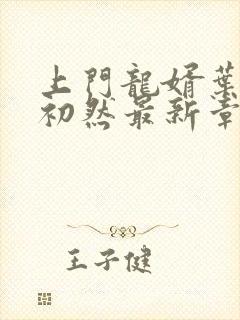 上門龍婿葉
初然最新章
王子健